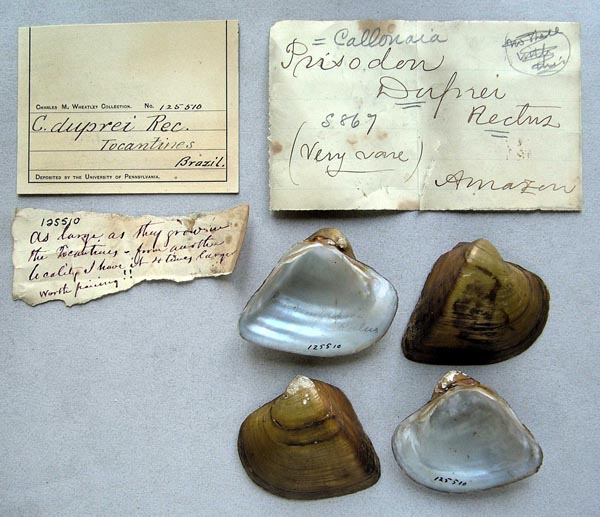 CHARLES M. WHEATLEY COLLECTION. No. 125510
C. duprei Rec.
Tocantines
Brazil.
DEPOSITED BY THE UNIVERSITY OF PENNSYLVANIA.
= Callonaia
Prisodon
Duprei
Rectus
S867
(Very rare)
Amazon
another
this
125510
as large as they grow in
the Tocantines - from another
locality I have it 10 times larger
Worth having!!
125510
125510